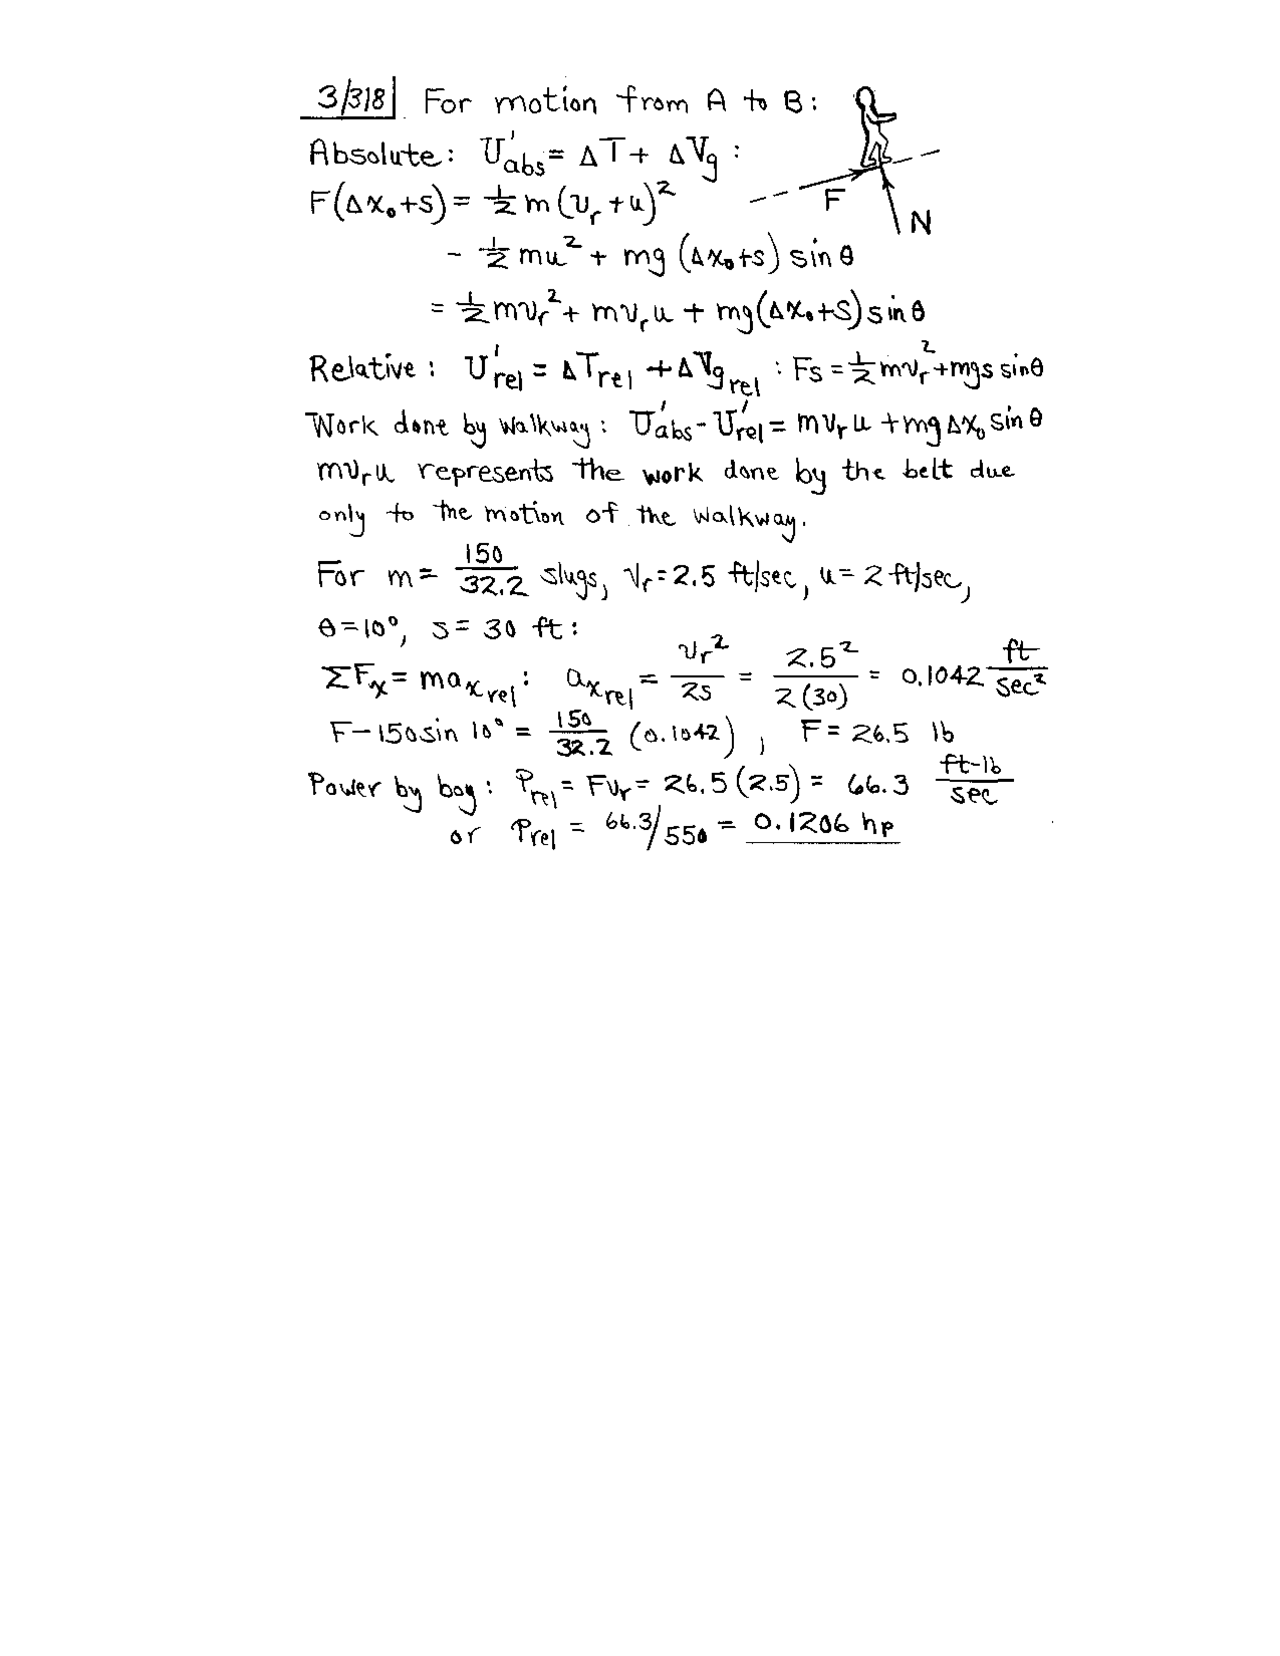 3/318 For motion from A to B:
Absolute: U'abs = ΔT + ΔVg :
F(Δx₀+s) = ½ m (vᵣ + u)²
F
N
- ½ mu² + mg (Δx₀+s) sin θ
= ½ mvᵣ² + mvᵣu + mg(Δx₀+s) sin θ
Relative: U'rel = ΔTrel + ΔVg rel : Fs = ½ mvᵣ² + mgs sin θ
Work done by walkway: U'abs - U'rel = mvᵣu + mgΔx₀ sin θ
mvᵣu represents the work done by the belt due
only to the motion of the walkway.
For m = 150/32.2 slugs, vᵣ = 2.5 ft/sec, u = 2 ft/sec,
θ = 10°, s = 30 ft:
ΣFx = max rel : ax rel = vᵣ²/2s = 2.5²/2(30) = 0.1042 ft/sec²
F - 150 sin 10° = 150/32.2 (0.1042), F = 26.5 lb
Power by boy: Prel = Fvᵣ = 26.5 (2.5) = 66.3 ft-lb/sec
or Prel = 66.3/550 = 0.1206 hp